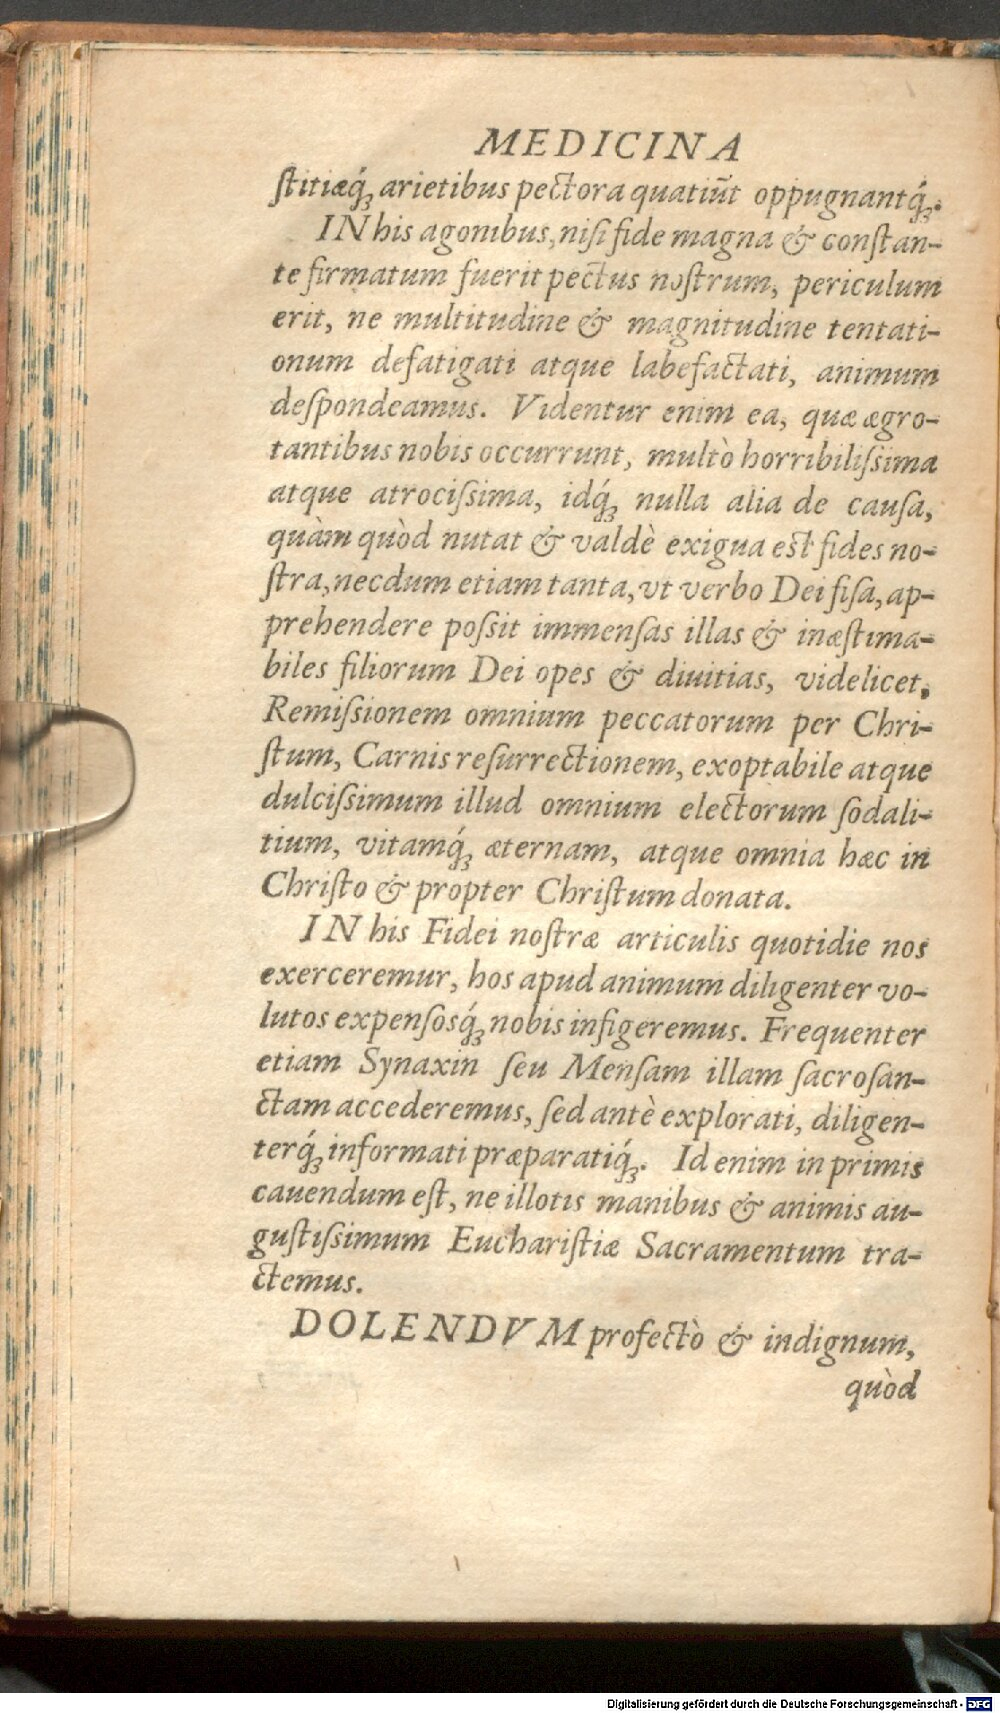 MEDICINA
ſtitiæq́ꝫ arietibus pectora quatiūt oppugnantq́ꝫ.
IN his agonibus, niſi fide magna & conſtan-
te firmatum fuerit pectus noſtrum, periculum
erit, ne multitudine & magnitudine tentati-
onum defatigati atque labefactati, animum
deſpondeamus. Videntur enim ea, quæ ægro-
tantibus nobis occurrunt, multò horribiliſsima
atque atrociſsima, idq́ꝫ nulla alia de cauſa,
quàm quòd nutat & valdè exigua est fides no-
ſtra, necdum etiam tanta, vt verbo Dei fiſa, ap-
prehendere poſsit immenſas illas & inæſtima-
biles filiorum Dei opes & diuitias, videlicet,
Remiſsionem omnium peccatorum per Chri-
ſtum, Carnis reſurrectionem, exoptabile atque
dulciſsimum illud omnium electorum ſodali-
tium, vitamq́ꝫ æternam, atque omnia hæc in
Chriſto & propter Chriſtum donata.
IN his Fidei noſtræ articulis quotidie nos
exerceremur, hos apud animum diligenter vo-
lutos expenſosq́ꝫ nobis infigeremus. Frequenter
etiam Synaxin ſeu Menſam illam ſacroſan-
ctam accederemus, ſed antè explorati, diligen-
terq́ꝫ informati præparatiq́ꝫ. Id enim in primis
cauendum eſt, ne illotis manibus & animis au-
guſtiſsimum Euchariſtiæ Sacramentum tra-
ctemus.
DOLENDVM profectò & indignum,
quòd
Digitalisierung gefördert durch die Deutsche Forschungsgemeinschaft - DFG